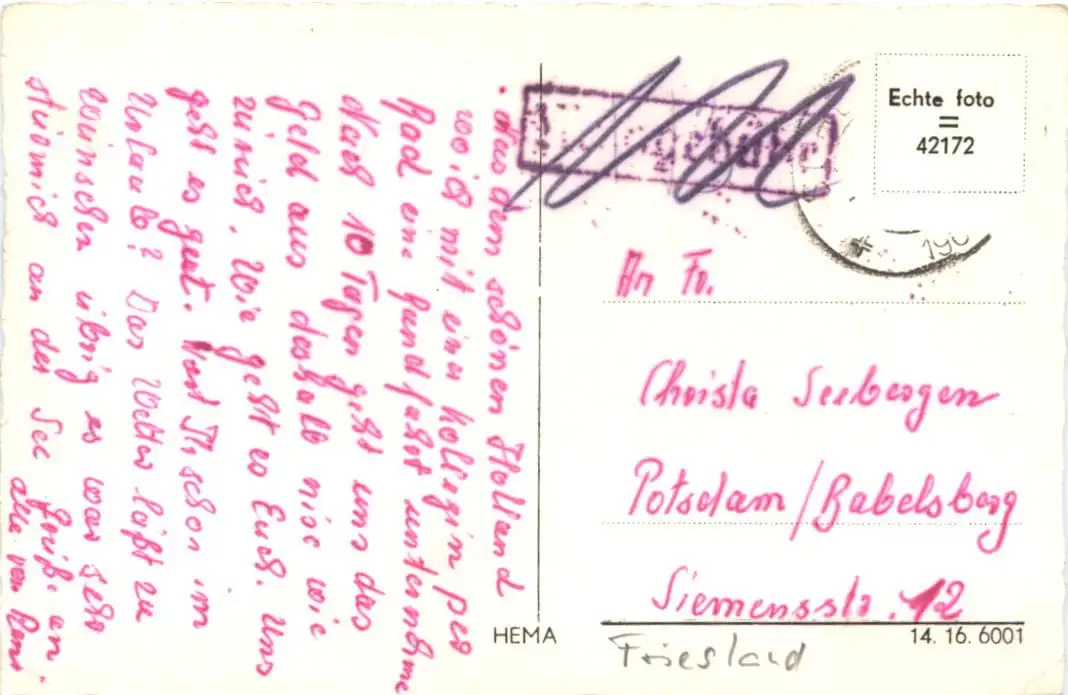 . Aus dem schönen Holland
wo ich mit einer kollegin per
Rad eine Rundfahrt unternehme
Nach 10 Tagen geht uns das
Geld aus deshalb nise wie
zurück. Wie geht es Euch. Uns
geht es gut. Ward Ihr schon im
Urlaub? Das Wetter läßt zu
wünschen übrig es war sehr
stürmisch an der See Grüße an
alle von
Echte foto
=
42172
An Fr.
Christa Seebergen
Potsdam/Babelsberg
Siemensstr. 12
HEMA
14.16.6001
Friesland